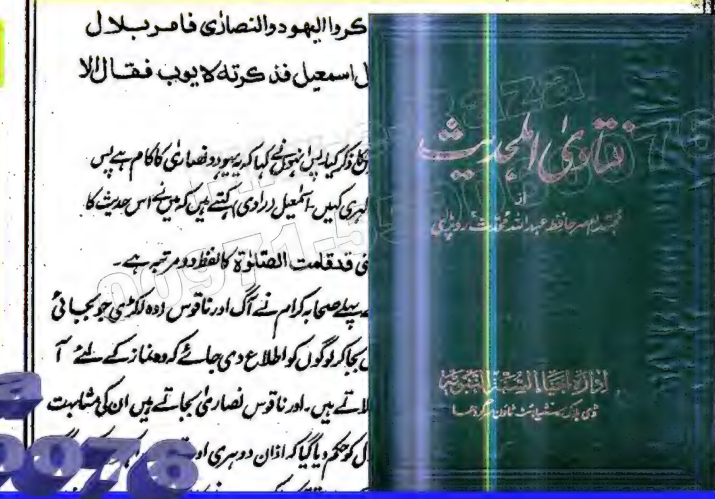 کروا الیهود والنصاری فامر بلال
ل اسمعیل فذکرته لایوب فقال الا
ذکر کیا، پس انہوں نے کہا کہ یہ یہود و نصاریٰ کا کام ہے پس
اکہری کہیں۔ اسمٰعیل (راوی) کہتے ہیں کہ میں نے اس حدیث کا
قد قامت الصلوٰة کا لفظ دو مرتبہ ہے۔
پہلے صحابہ کرام نے آگ اور ناقوس (وہ لکڑی جو بجائی
بجا کر لوگوں کو اطلاع دی جائے کہ وہ نماز کے لئے آ
لاتے ہیں۔ اور ناقوس نصاریٰ بجاتے ہیں ان کی مشابہت
ل کو حکم دیا گیا کہ اذان دوہری او
فتاویٰ اہلحدیث
از
مجتہد العصر حافظ عبداللہ محدث روپڑی
ادارہ احیاء السنة النبویة
ڈی بلاک سٹیلائٹ ٹاؤن سرگودھا
00971-5
9976